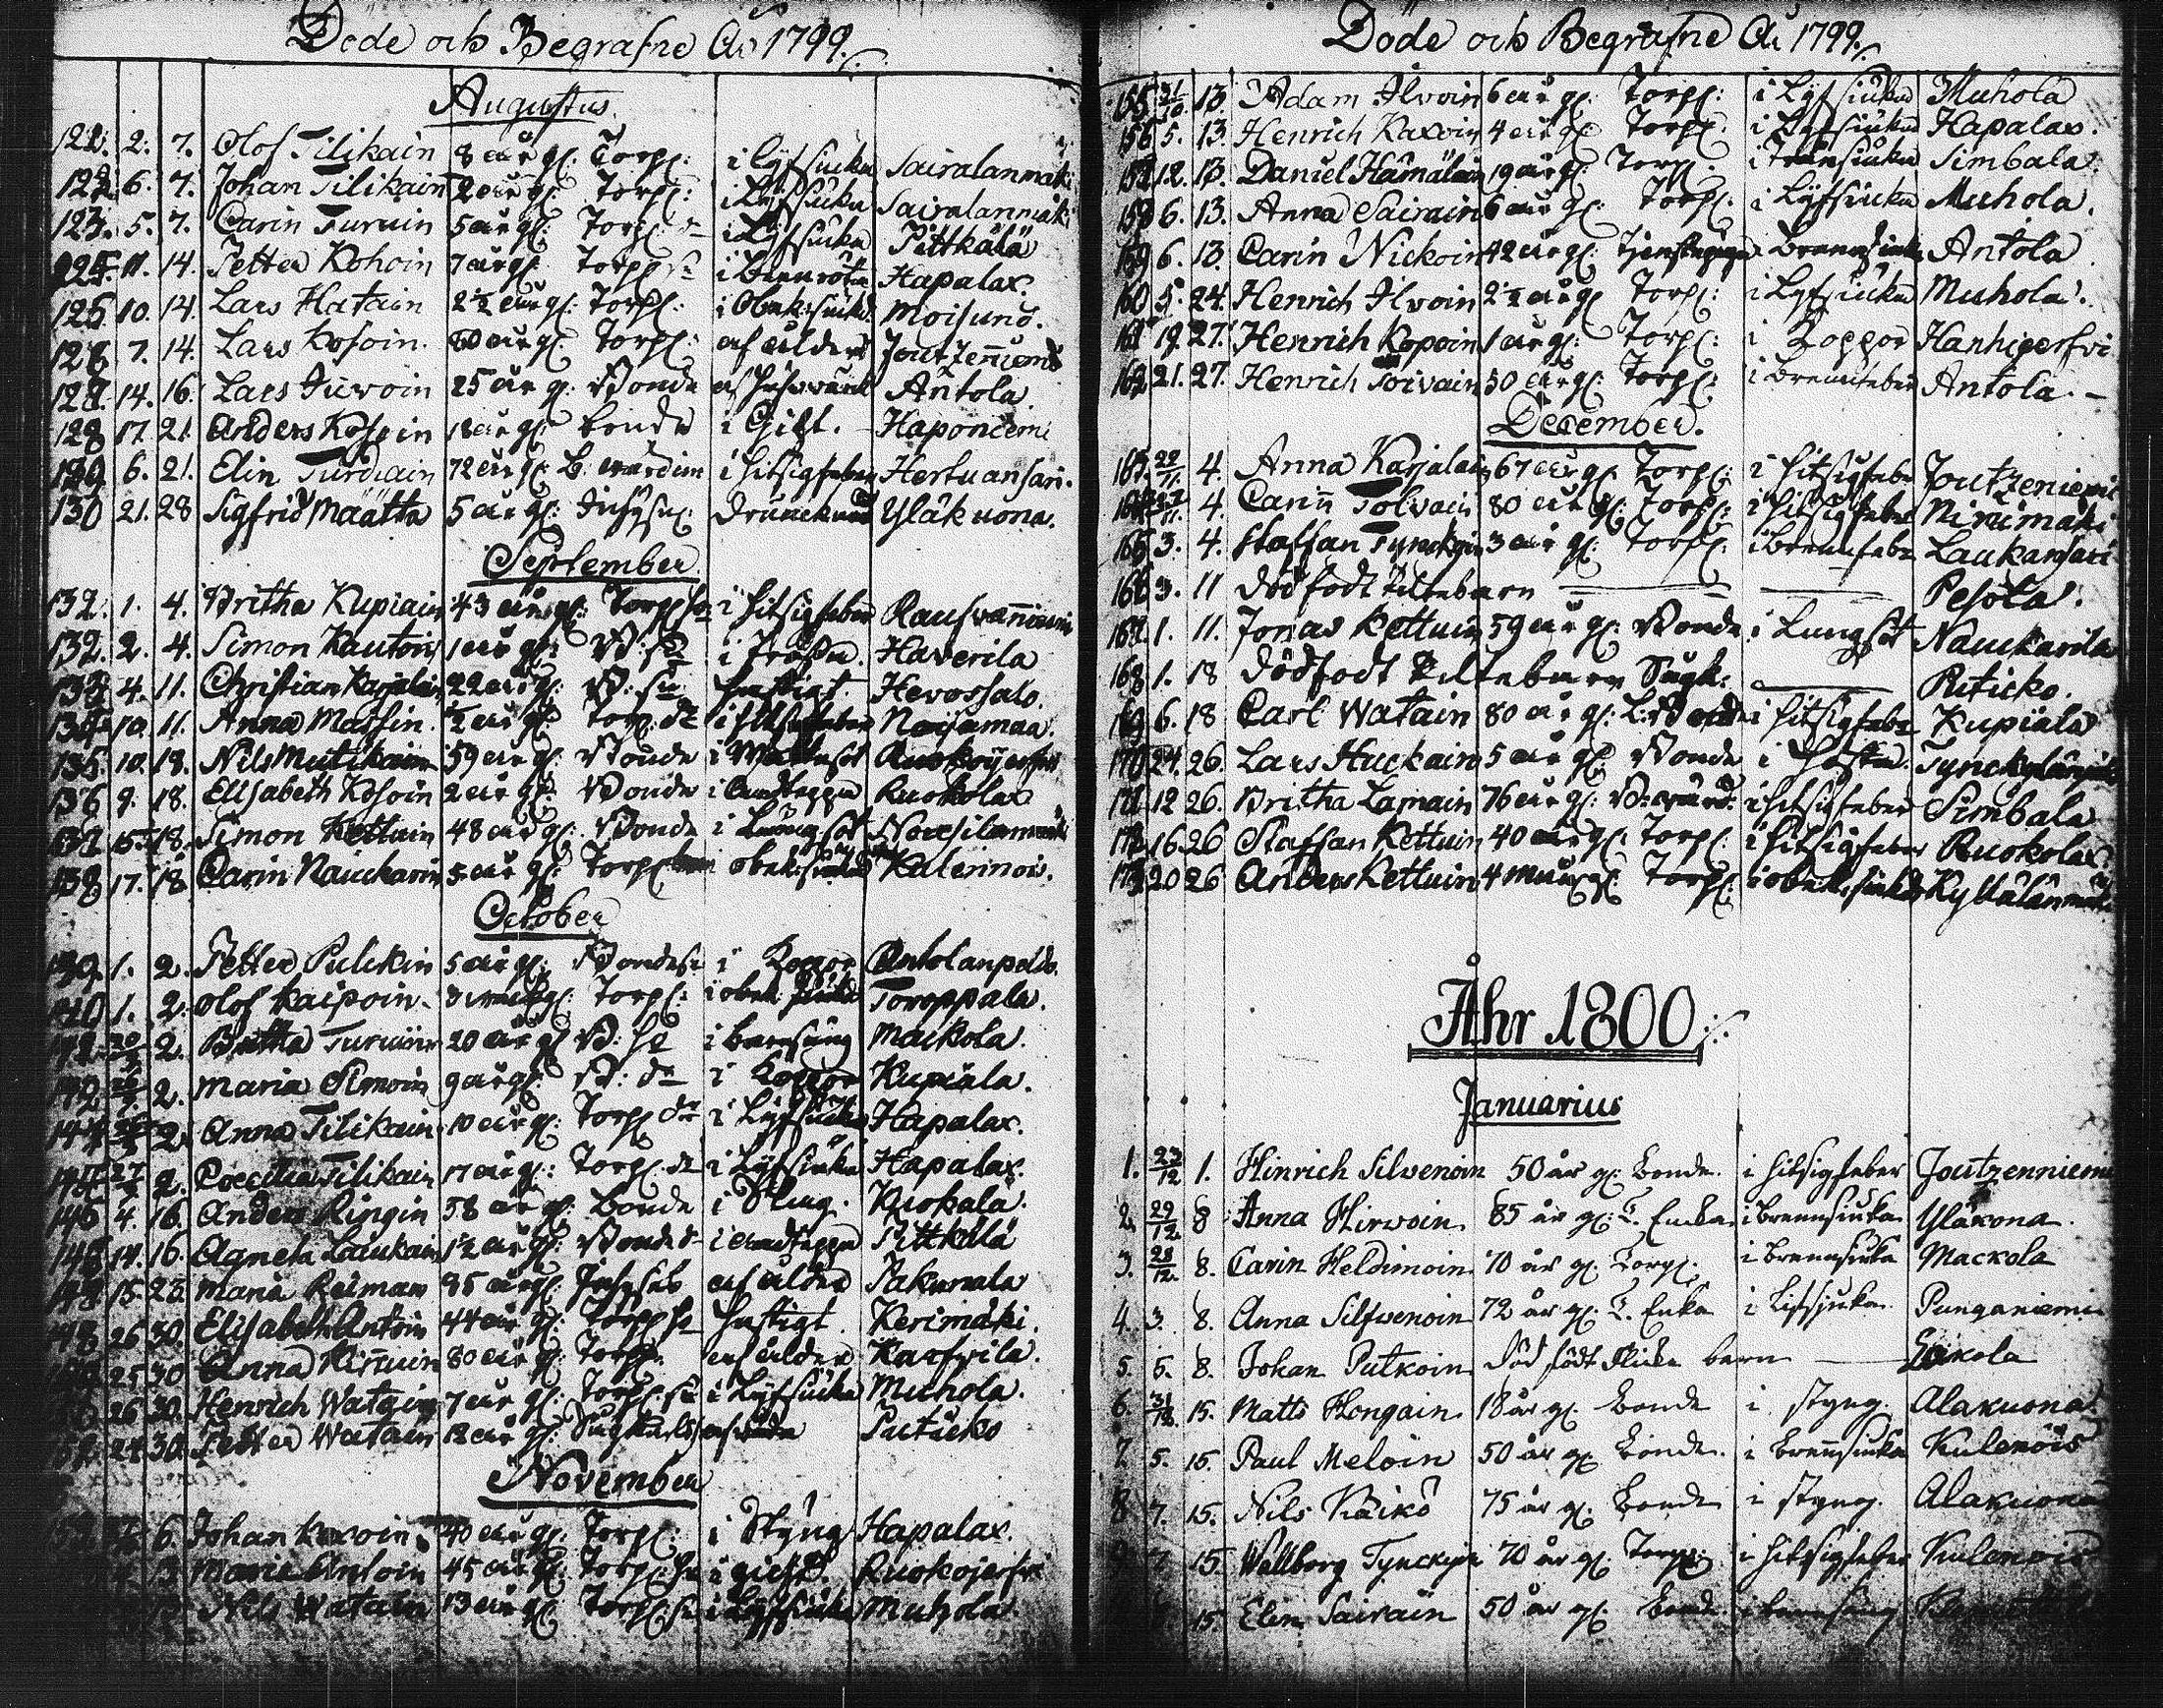 Döde och Begrafne År 1799.
Augustus.
121. 2. 7. Olof Tilikain 8 år gl. Torp: i Lyfsiuka Sairalanmäki
122. 6. 7. Johan Tilikain 2 år gl. Torp: i Lyfsiuka Sairalanmäki
123. 5. 7. Carin Turuin 5 år gl. Torp: dr i Lyfsiuka Pittkälä
11. 14. Petter Kohoin 7 år gl. Torp: sn i Hapalax.
125 10. 14. Lars Hatain 2½ år gl: Torp: i Obek: siukd. Moisund.
126 7. 14. Lars Kosoin. 60 år gl. Torp: af ålder Joutzenniemi
14. 16. Lars Juvoin 25 år gl. Bonde Antola
128 17. 21. Anders Kosoin 18 år gl. bonde i Gikt. Haponiemi
6. 21. Elin Turuain 72 år gl. B. i hitsigfeber Hertuansari.
130 21. 28 Sigfrid Määttä 5 år gl: Inhys: drunknad Yläkuona.
September.
132. 1. 4. Britha Kupiain 43 år gl: Torp: hu i hitsigfeber
132. 2. 4. Simon Kautoin 1 år gl: B: sn i Haverila
4. 11. Christian Karjalain 22 år gl: B: sn hastigt. Hevossalo.
10. 11. Anna Massin. ½ år gl: Torp: dr
135. 10. 18. Nils Mutikain 59 år gl: Bonde i Ruokojerfvi
136 9. 18. Elisabeth Kosoin 2 år gl: Bonde i andtäppa Ruokolax
15. 18. Simon Kettuin 48 år gl: Bonde i Lungsot
138 17. 18. Carin Nauckarin 5 år gl: Torp: obek: siukd Kalennois.
October
139. 1. 2. Petter Pulckin 5 år gl: Bondesn i Koppor Antolanpeldo.
140 1. 2. Olof Kaipoin. gl: Torp: i obek. siukd Toroppala.
2. Britha Turuin 20 år gl B: hu i barnsäng Mackola.
2. Maria Simoin 9 år gl: B: dr i Koppor Kupiala.
2. Anna Tilikain 10 år gl: Torp: dr i Lyfsiuka Hapalax.
2. Coecilia Tilikain 17 år gl: Torp: dr i Lyfsiuka Hapalax.
145 4. 16. Anders Ringin 58 år gl: Bonde i Sting. Kuokala.
14. 16. Agneta Laukain 1½ år gl: Bonded. i andtäppa Pittkälä
15. 23. Maria Reiman 85 år gl: Inhyses af ålder Pakunala
148 26 30. Elisabeth Antoin 44 år gl: Torp: hu hastigt. Kerimäki.
25 30 Anna Kinnuin 80 år gl: Torp: af ålder Karfvila.
26 30. Henrich Watain 7 år gl: Torp: sn i Lyfsiuka Muhola.
24 30. Petter Watain 12 år gl: Puticko
November
6. Johan Kaxoin 40 år gl: Torp: i Styng Hapalax.
Maria Antoin 45 år gl: Torp: hu i gickt. Ruokojerfvi
Nils Watain 13 år gl: Torp: sn i Lyfsiuka Muhola.
Döde och Begrafne År 1799.
155 31/10. 13. Adam Ilvoin 6 år gl: Torp: i Lyfsiuka Muhola
156 5. 13. Henrich Kaxoin 4 år gl: Torp: i Lyfsiuka Hapalax.
12. 13. Daniel Hämäläin 19 år gl: Torp: i Simbala.
158 6. 13. Anna Sairain 6 år gl: Torp: i Lyfsiuka Muhola.
159 6. 13. Carin Nickoin 42 år gl: Tjenstepiga Antola
160 5. 24. Henrich Ilvoin 2½ år gl Torp: i Lyfsiuka Muhola.
161 19. 27. Henrich Kopoin 1 år gl: Torp: i Koppor Hanhijerfvi
162 21. 27. Henrich Soivain 50 år gl: Torp: i brennfeber Antola. –
December.
163. 29/11. 4. Anna Karjalain 67 år gl: Torp: i hitsigfeber Joutzeniemi
4. Carin Tolvain 80 år gl: Torp: i hitsigfeber Ninimäki
165 3. 4. Staffan Tynckyin 3 år gl: Torp: i brennfeber Laukansari
166 3. 11 dödfödt Piltebarn Pesola.
1. 11. Jonas Kettuin 59 år gl: Bonde i Lungsot Nauckarila
168 1. 18 Dödfödt Piltebarn Puticko.
169 6. 18 Carl Watain 80 år gl: i hitsigfeber Kupiala
170 24. 26. Lars Huckain 5 år gl: Bonde i Hosta. Tynckylänmäki
171 12 26. Britha Lamain 76 år gl: i hitsigfeber Simbala
172 16 26 Staffan Kettuin 40 år gl: Torp: i hitsigfeber Ruokolax
173 20 26 Anders Kettuin 4 mån gl: Torp: i obek: siukd Kyllälänmäki
Åhr 1800.
Januarius
1. 27/12 1. Hinrich Silvenoin 50 år gl. bonde. i hitsigfeber Joutzenniemi
2. 29/12. 8 Anna Hirvoin 85 år gl: T. Enka i brennsiuka Yläkona.
3. 28/12. 8. Carin Heldimoin 70 år gl. Torp: i brennsiuka Mackola
4. 3. 8. Anna Silfvenoin 72 år gl: T. Enka i Lifsjuka Punganiemi
5. 5. 8. Johan Putkoin död födt Flicke barn
6. 31/12. 15. Matts Hongain 18 år gl. bonde i styng. Alakuona.
7. 5. 15. Paul Meloin 50 år gl. bonde. i brennsiuka Kulenois
8 7. 15. Nils Käikö 75 år gl. bonde i styng. Alakuona
9 7. 15. Wallborg Tynckyin 70 år gl: Torp: i hitsigfeber Kulenois
15. Elin Sairain 50 år gl. bonde i barnsäng